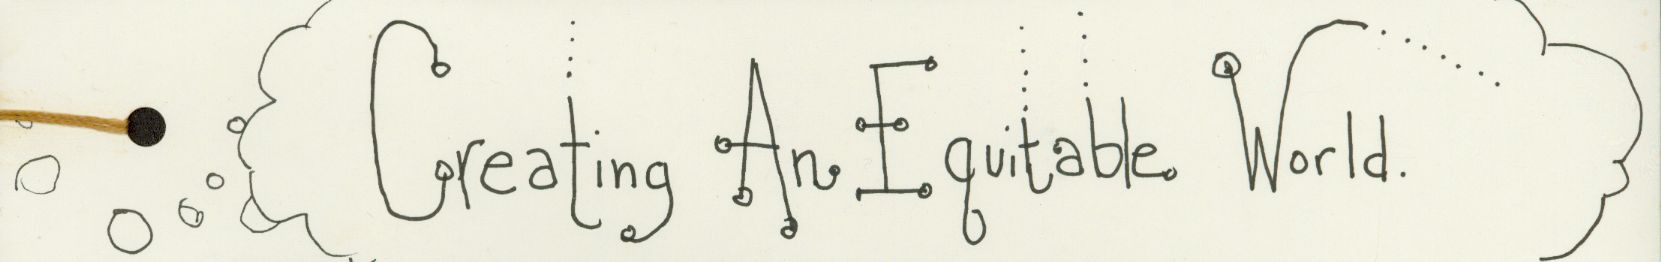 Creating An Equitable World.